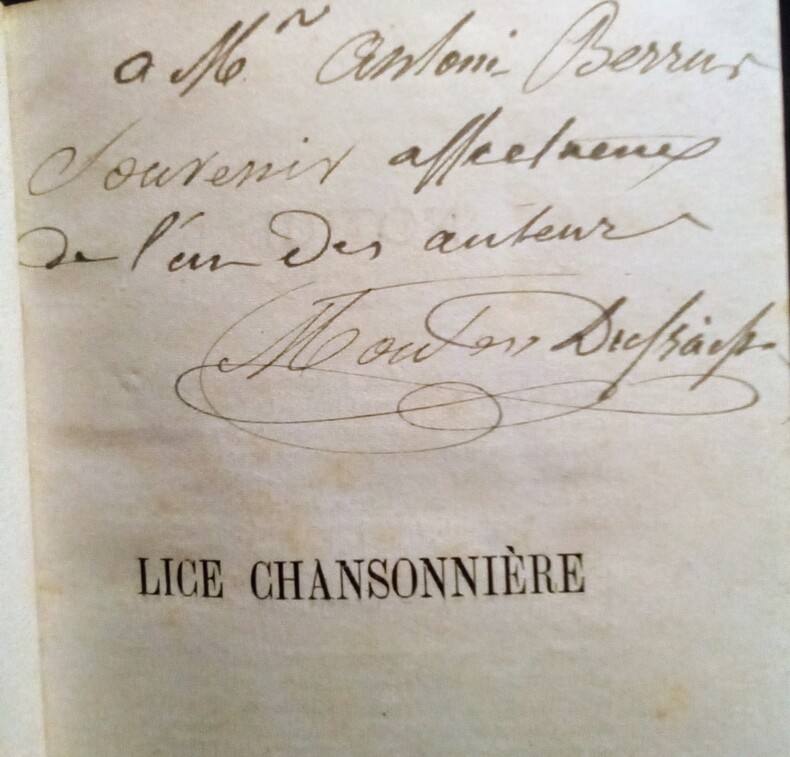 a Mr Antoni Berrus
Souvenir affectueux
de l'un des auteurs
LICE CHANSONNIÈRE